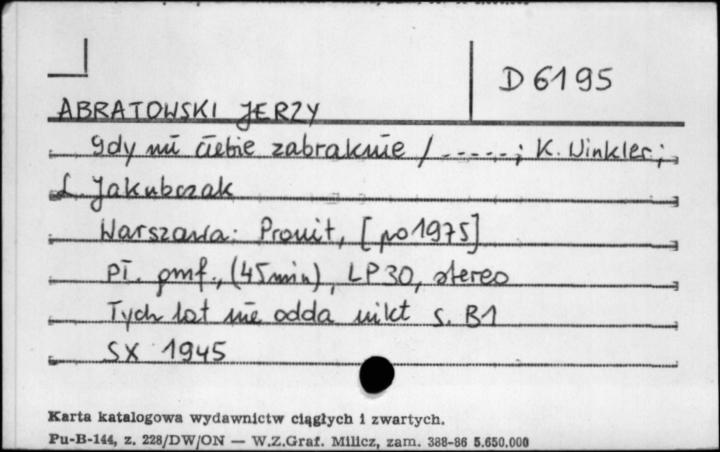 D 6195
ABRATOWSKI JERZY
Gdy mi ciebie zabraknie / -----; K. Winkler;
L. Jakubczak
Warszawa: Pronit, [po 1975]
Pł. gmf., (45 min), LP 30, stereo
Tych lat nie odda nikt s. B1
SX 1945
Karta katalogowa wydawnictw ciągłych i zwartych.
Pu-B-144, z. 228/DW/ON — W.Z.Graf. Milicz, zam. 388-86 5.650.000